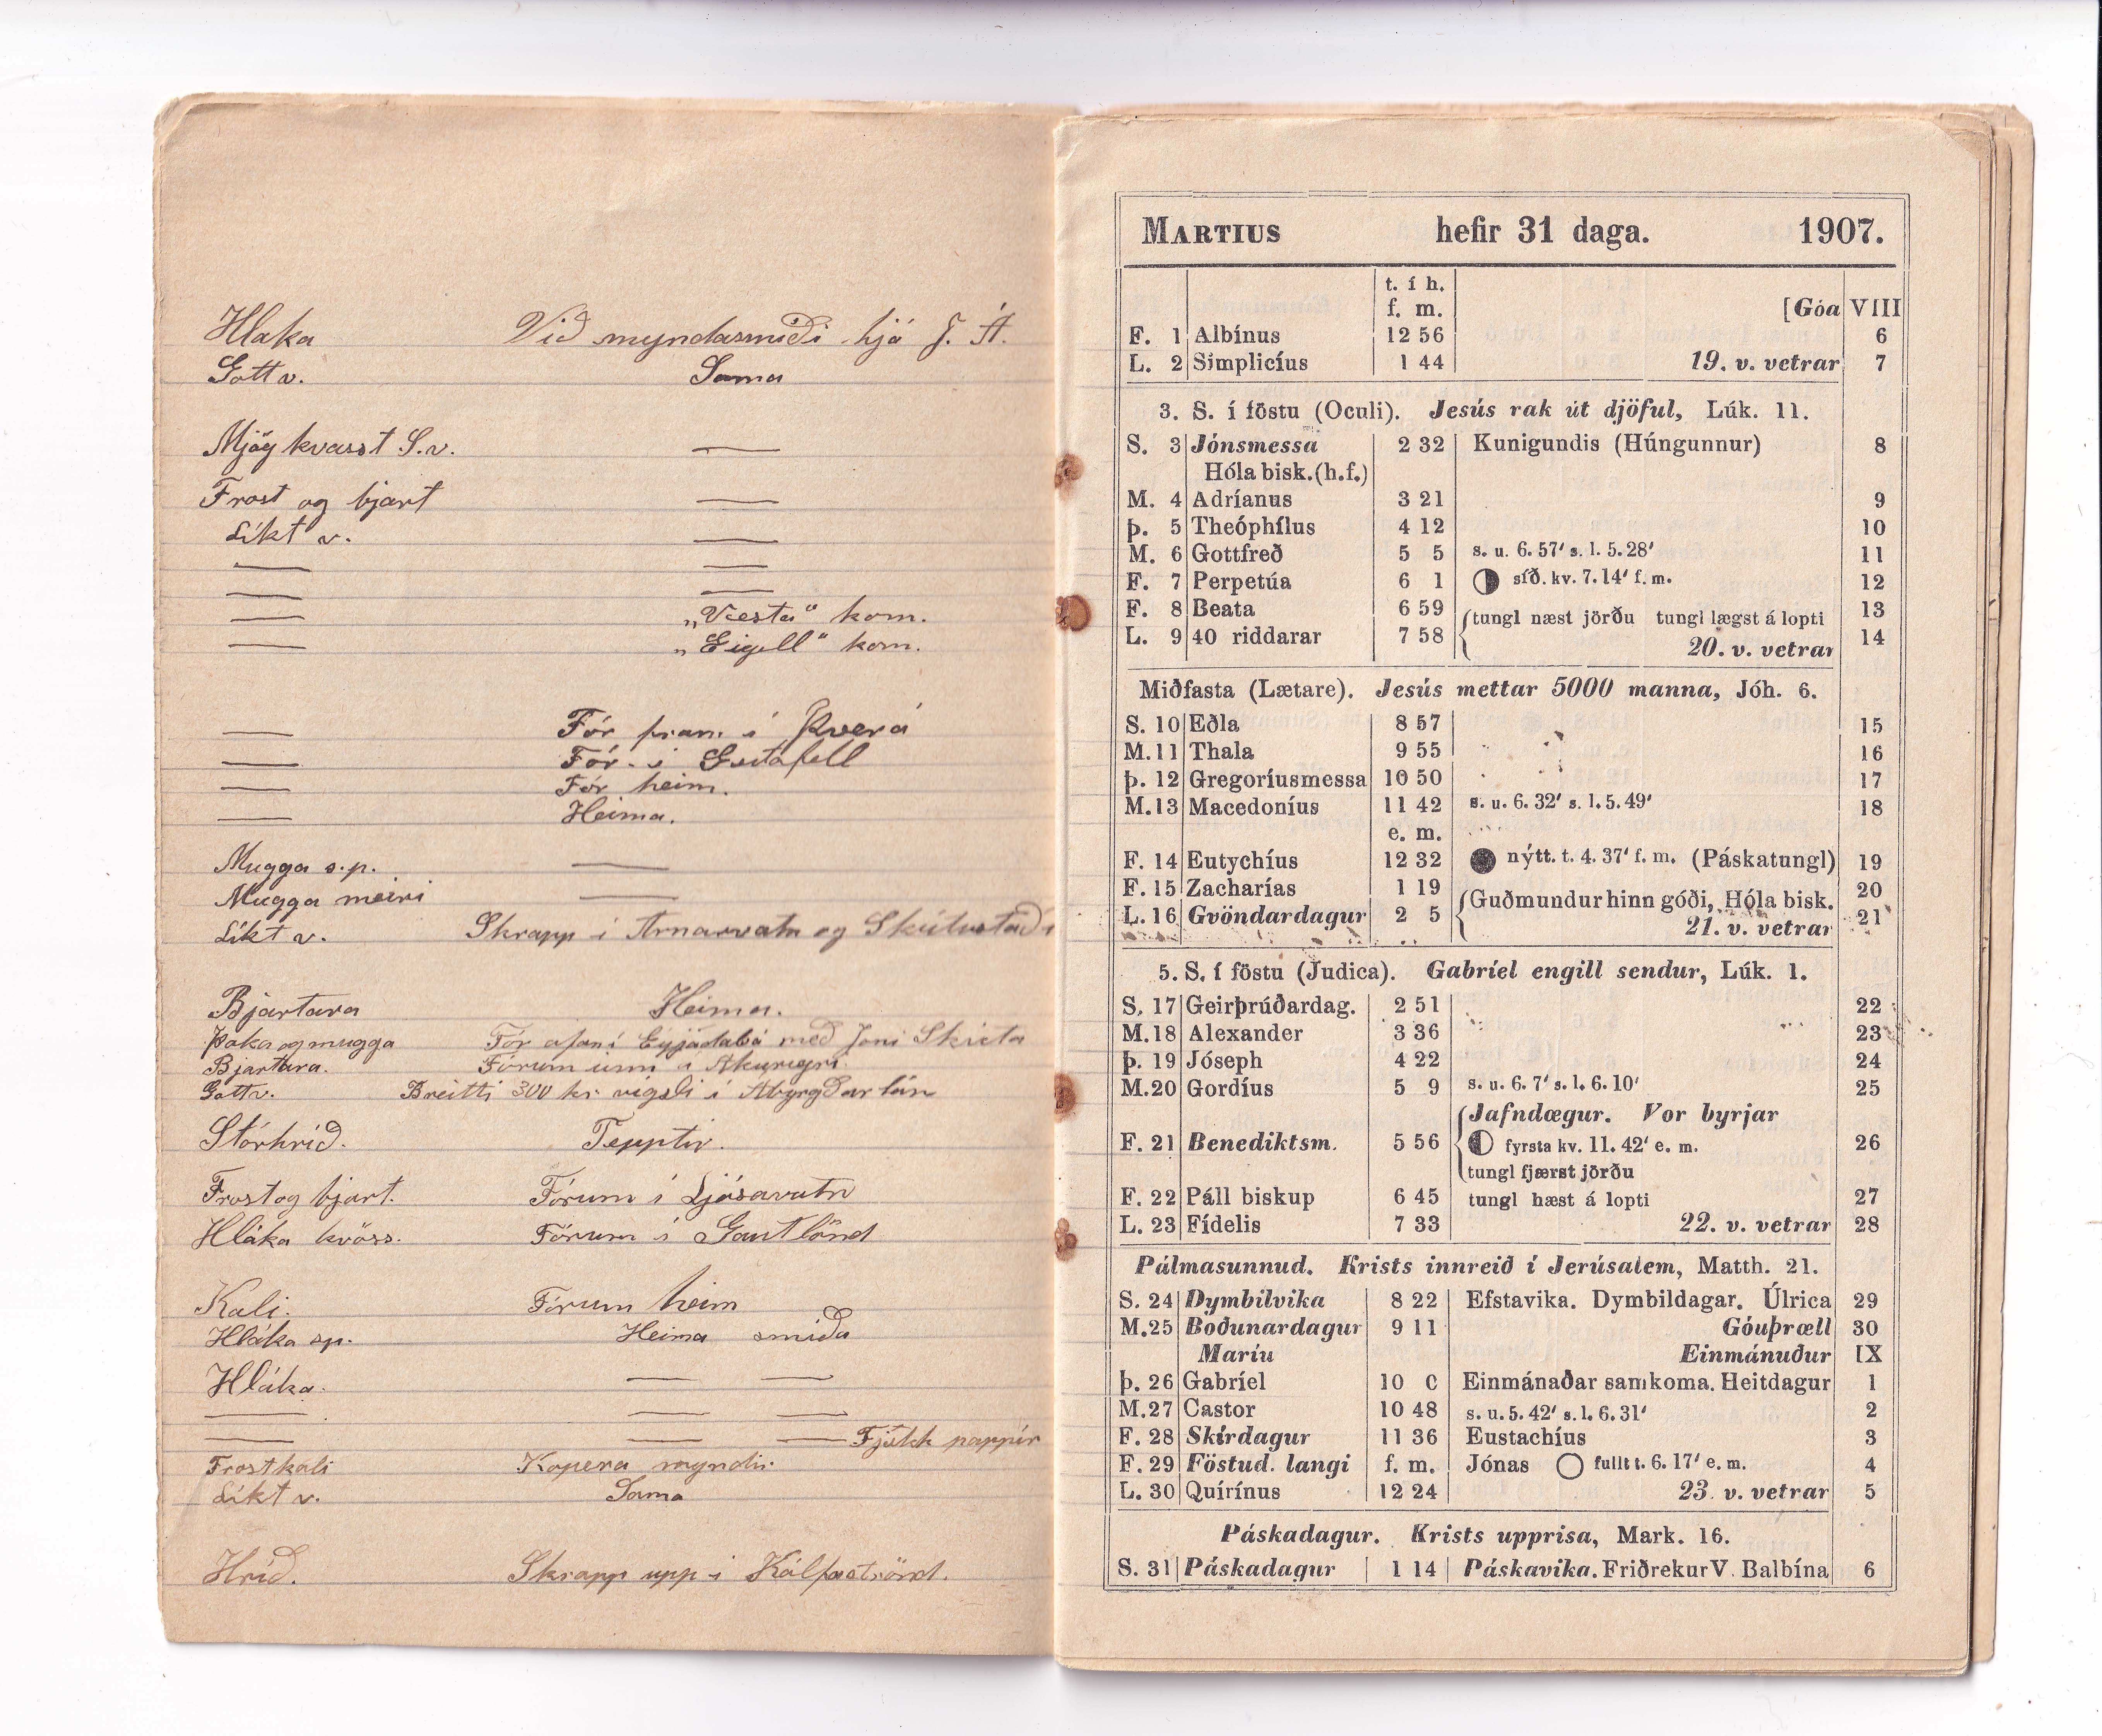 Hlaka Við myndasmíði hjá J. Á.
Gott v. Sama
Mjög kvasst S.v. —
Frost og bjart —
Líkt v. —
— —
— —
— „Vesta“ kom.
— „Eigell“ kom.
— Fór fram í Þverá
— Fór í Geitafell
— Fór heim.
— Heima.
Mugga s.p. —
Mugga meiri —
Líkt v. Skrapp í Arnarvatn og Skútustaði
Bjartara Heima.
Þoka og mugga Fór ofaní Eyjadalsá með Jóni Skúta
Bjartara. Fórum inn á Akureyri.
Gott v. Breitti 300 kr. vigsli í Abyrgðar lán
Stórhríð. Tepptir.
Frost og bjart. Fórum í Ljósavatn
Hláka hvöss. Fórum í Gautlönd
Kali. Fórum heim
Hláka sp. Heima smíða
Hláka. — —
— — —
— — — Fjekk pappír
Frostkali Kopera myndir
Líkt v. Sama
Hríð. Skrapp upp í Kálfaströnd.
MARTIUS hefir 31 daga. 1907.
t. í h.
f. m. [Góa VIII
F. 1 Albínus 12 56 6
L. 2 Simplicíus 1 44 19. v. vetrar 7
3. S. í föstu (Oculi). Jesús rak út djöful, Lúk. 11.
S. 3 Jónsmessa 2 32 Kunigundis (Húngunnur) 8
Hóla bisk.(h.f.)
M. 4 Adríanus 3 21 9
Þ. 5 Theóphílus 4 12 10
M. 6 Gottfreð 5 5 s. u. 6. 57′ s. l. 5. 28′ 11
F. 7 Perpetúa 6 1 síð. kv. 7. 14′ f. m. 12
F. 8 Beata 6 59 tungl næst jörðu tungl lægst á lopti 13
L. 9 40 riddarar 7 58 20. v. vetrar 14
Miðfasta (Lætare). Jesús mettar 5000 manna, Jóh. 6.
S. 10 Eðla 8 57 15
M. 11 Thala 9 55 16
Þ. 12 Gregoríusmessa 10 50 17
M. 13 Macedoníus 11 42 s. u. 6. 32′ s. l. 5. 49′ 18
e. m.
F. 14 Eutychíus 12 32 nýtt. t. 4. 37′ f. m. (Páskatungl) 19
F. 15 Zacharías 1 19 Guðmundur hinn góði, Hóla bisk. 20
L. 16 Gvöndardagur 2 5 21. v. vetrar 21
5. S. í föstu (Judica). Gabríel engill sendur, Lúk. 1.
S. 17 Geirþrúðardag. 2 51 22
M. 18 Alexander 3 36 23
Þ. 19 Jóseph 4 22 24
M. 20 Gordíus 5 9 s. u. 6. 7′ s. l. 6. 10′ 25
Jafndægur. Vor byrjar
F. 21 Benediktsm. 5 56 fyrsta kv. 11. 42′ e. m. 26
tungl fjærst jörðu
F. 22 Páll biskup 6 45 tungl hæst á lopti 27
L. 23 Fídelis 7 33 22. v. vetrar 28
Pálmasunnud. Krists innreið í Jerúsalem, Matth. 21.
S. 24 Dymbilvika 8 22 Efstavika. Dymbildagar. Úlrica 29
M. 25 Boðunardagur 9 11 Góuþræll 30
Maríu Einmánuður IX
Þ. 26 Gabríel 10 0 Einmánaðar samkoma. Heitdagur 1
M. 27 Castor 10 48 s. u. 5. 42′ s. l. 6. 31′ 2
F. 28 Skírdagur 11 36 Eustachíus 3
F. 29 Föstud. langi f. m. Jónas fullt t. 6. 17′ e. m. 4
L. 30 Quírínus 12 24 23. v. vetrar 5
Páskadagur. Krists upprisa, Mark. 16.
S. 31 Páskadagur 1 14 Páskavika. Friðrekur V. Balbína 6